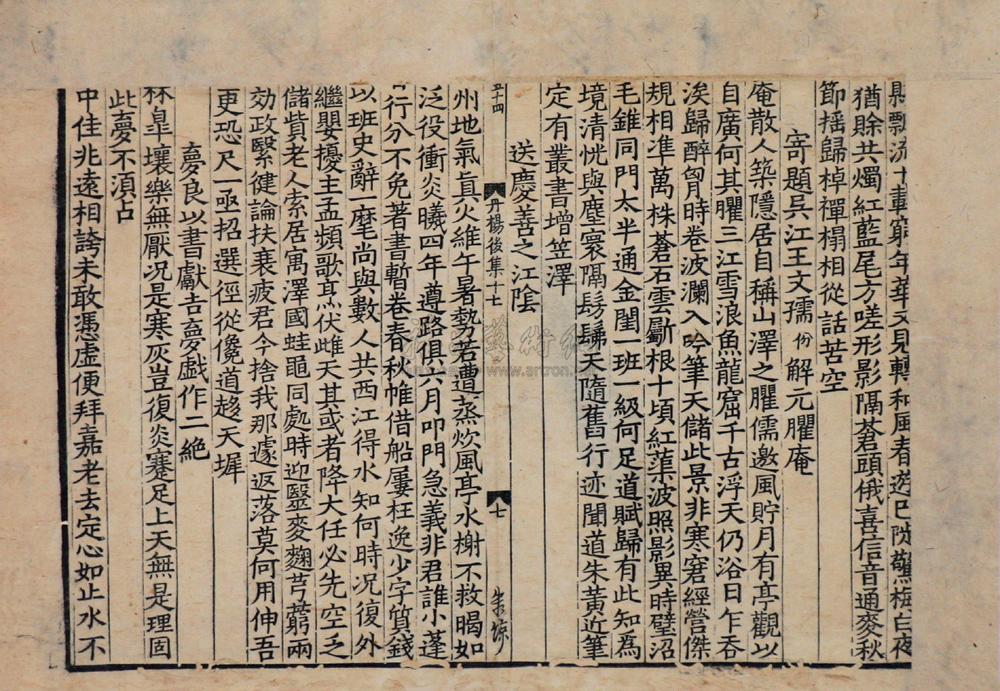 飄流十載窮年華又見轉和風春遊已愧驚梅白夜
猶賒共燭紅藍尾方嗟形影隔蒼頭俄喜信音通麥秋
節揺歸棹禪榻相從話苦空
寄題吳江王文孺份解元臞庵
庵散人築隱居自稱山澤之臞儒邀風貯月有亭觀以
自廣何其臞三江雪浪魚龍窟千古浮天仍浴日乍吞
涘歸醉胷時卷波瀾入吟筆天儲此景非寒窘經營傑
規相準萬株蒼石雲斸根十頃紅蕖波照影異時璧沼
毛錐同門太半通金閨一班一級何足道賦歸有此知爲
境清恍與塵寰隔髣髴天隨舊行迹聞道朱黃近筆
定有叢書增笠澤
送慶善之江陰
五十四
丹楊後集十七
七
州地氣真火維午暑勢若遭蒸炊風亭水榭不救暍如
泛役衝炎曦四年遵路俱六月叩門急義非君誰小蓬
行分不免著書暫卷春秋帷借船屢枉逸少字質錢
以班史辭一麾尚與數人共西江得水知何時况復外
繼嬰擾主孟頻歌烹伏雌天其或者降大任必先空乏
儲貲老人索居寓澤國蛙黽同處時迎毉麥麴芎藭兩
効政緊徤論扶衰疲君今捨我那遽返落莫何用伸吾
更恐尺一亟招選徑從儳道趍天墀
夢良以書獻吉夢戲作二絶
林臯壤樂無厭况是寒灰豈復炎蹇足上天無是理固
此夢不湏占
中佳兆遠相誇未敢憑虛便拜嘉老去定心如止水不